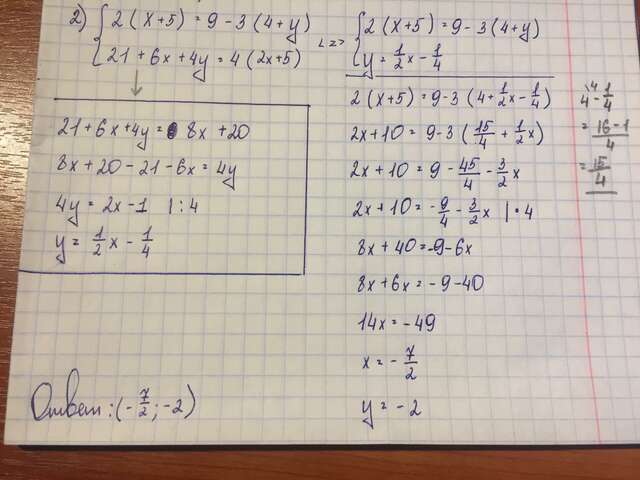 2) { 2(x+5) = 9-3(4+y)
21+6x+4y = 4(2x+5)
<=> { 2(x+5) = 9-3(4+y)
y = 1/2 x - 1/4
↓
21+6x+4y = 8x+20
8x+20-21-6x = 4y
4y = 2x-1 | : 4
y = 1/2 x - 1/4
2(x+5) = 9-3(4+1/2 x - 1/4)
2x+10 = 9-3(15/4 + 1/2 x)
2x+10 = 9 - 45/4 - 3/2 x
2x+10 = -9/4 - 3/2 x | · 4
8x+40 = -9-6x
8x+6x = -9-40
14x = -49
x = -7/2
y = -2
4 - 1/4
= 16-1/4
= 15/4
Ответ: (-7/2; -2)